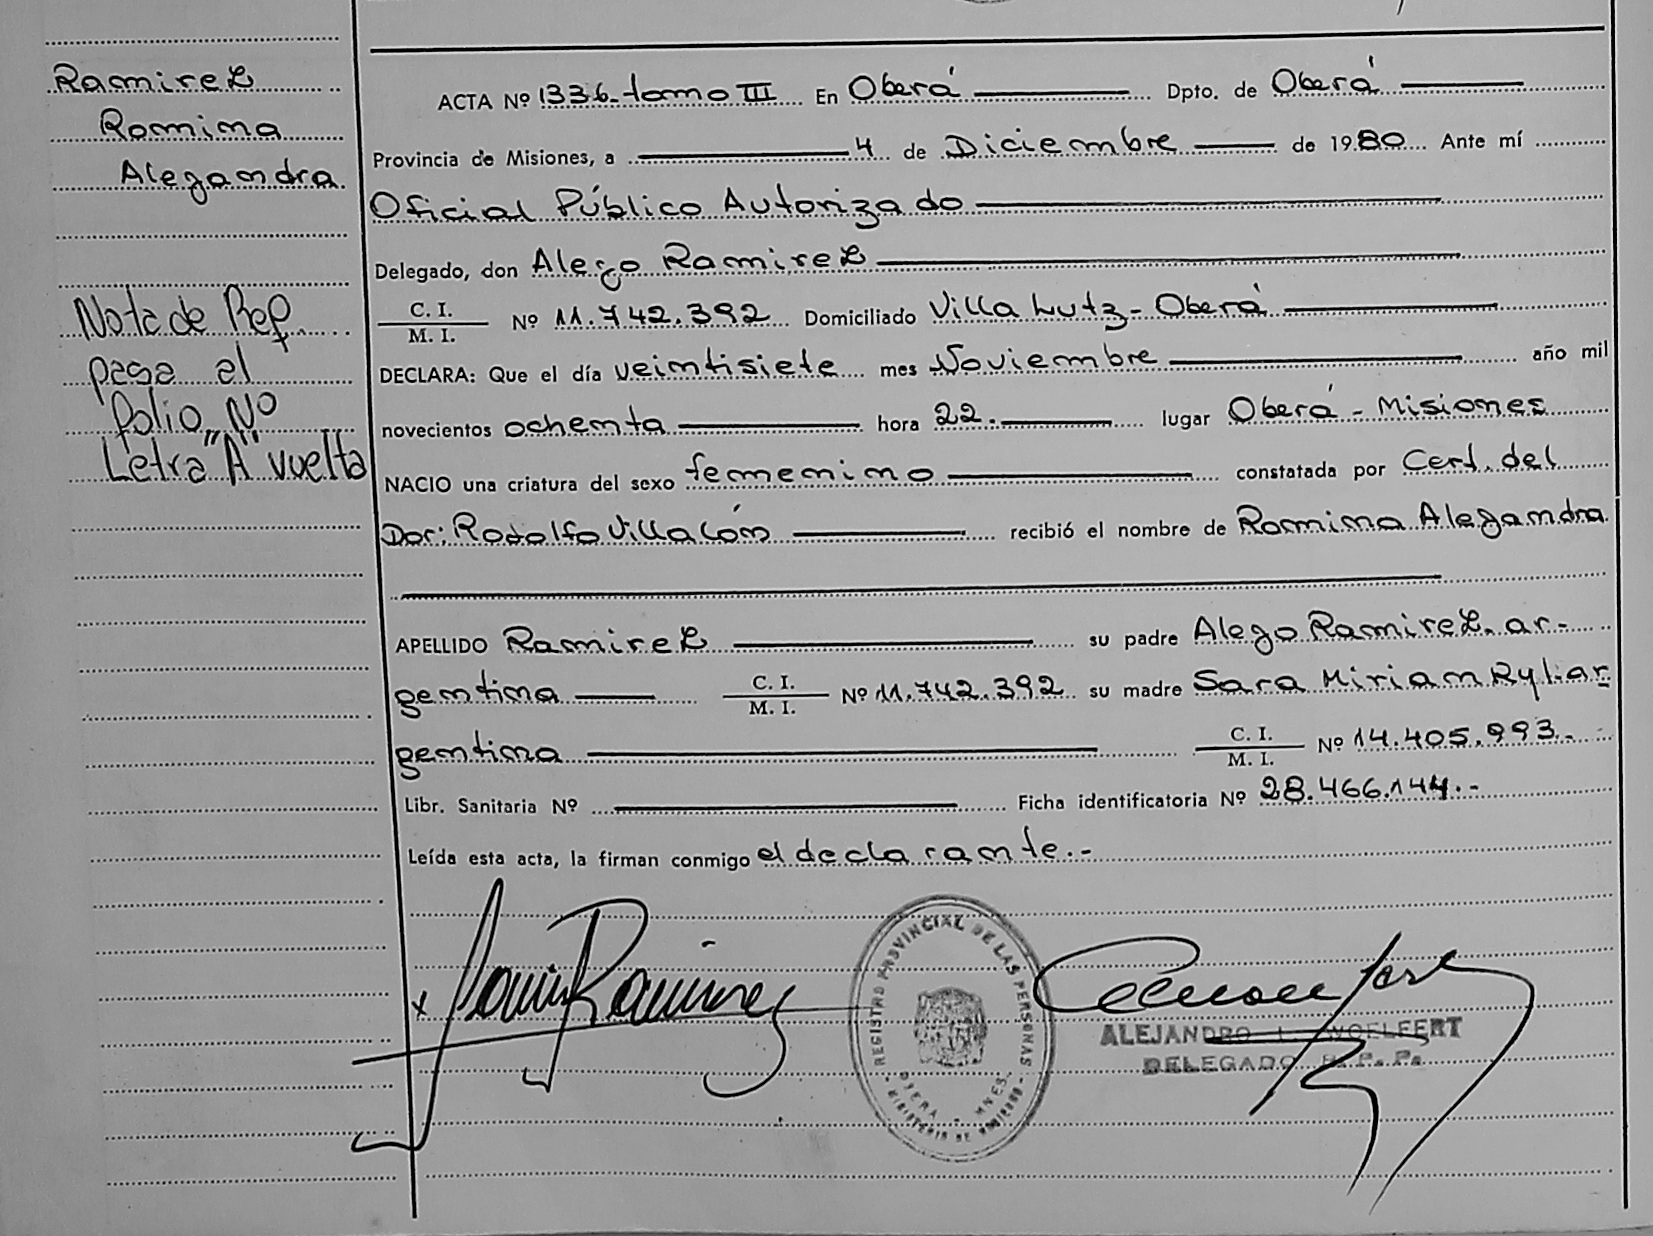 Ramirez
Romina
Alegandra
Nota de Ref
pasa al
Folio Nº
Letra "A" vuelta
ACTA Nº 1336-tomo III En Oberá Dpto. de Oberá
Provincia de Misiones, a 4 de Diciembre de 1980 Ante mí
Oficial Público Autorizado
Delegado, don Alego Ramirez
C. I.
M. I. Nº 11.742.392 Domiciliado Villa Lutz - Oberá
DECLARA: Que el día veintisiete mes Noviembre año mil
novecientos ochenta hora 22.- lugar Oberá - Misiones
NACIO una criatura del sexo femenino constatada por Cert. del
Dor: Rodolfo Villalón recibió el nombre de Romina Alegandra
APELLIDO Ramirez su padre Alego Ramirez, ar-
gentina C. I. M. I. Nº 11.742.392 su madre Sara Miriam Ryl-ar
gentina C. I. M. I. Nº 14.405.993.-
Libr. Sanitaria Nº Ficha identificatoria Nº 28.466.144.-
Leída esta acta, la firman conmigo el declarante.-
REGISTRO PROVINCIAL DE LAS PERSONAS
OBERA - MNES.
MINISTERIO DE GOBIERNO
ALEJANDRO WOELFERT
DELEGADO R. P. P.